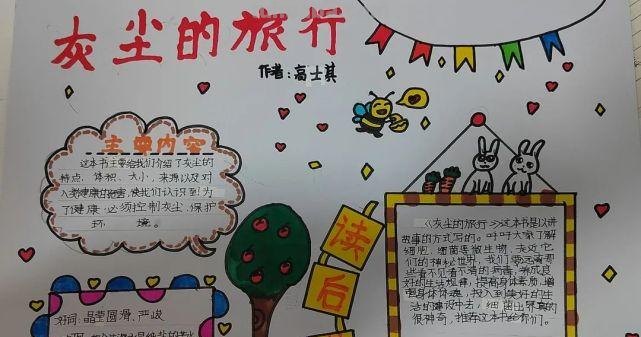 灰尘的旅行
作者:高士其
主要内容
这本书主要给我们介绍了灰尘的
特点、体积、大小、来源以及对
人类健康的危害,使我们认识到为
了健康,必须控制灰尘,保护
环境。
读
后
《灰尘的旅行》这本书是以讲
故事的方式写的。叶叶大家了解
细胞、细菌等微生物,走近它
们的神秘世界。我们要远离那
些看不见看不清的病毒,养成良
好的生活规律,提高身体素质,增
强身体体魄,投入到美好的生
活的建设中去,细菌世界真的
很神奇,推荐这本书给你们。
好词:晶莹圆滑、严峻